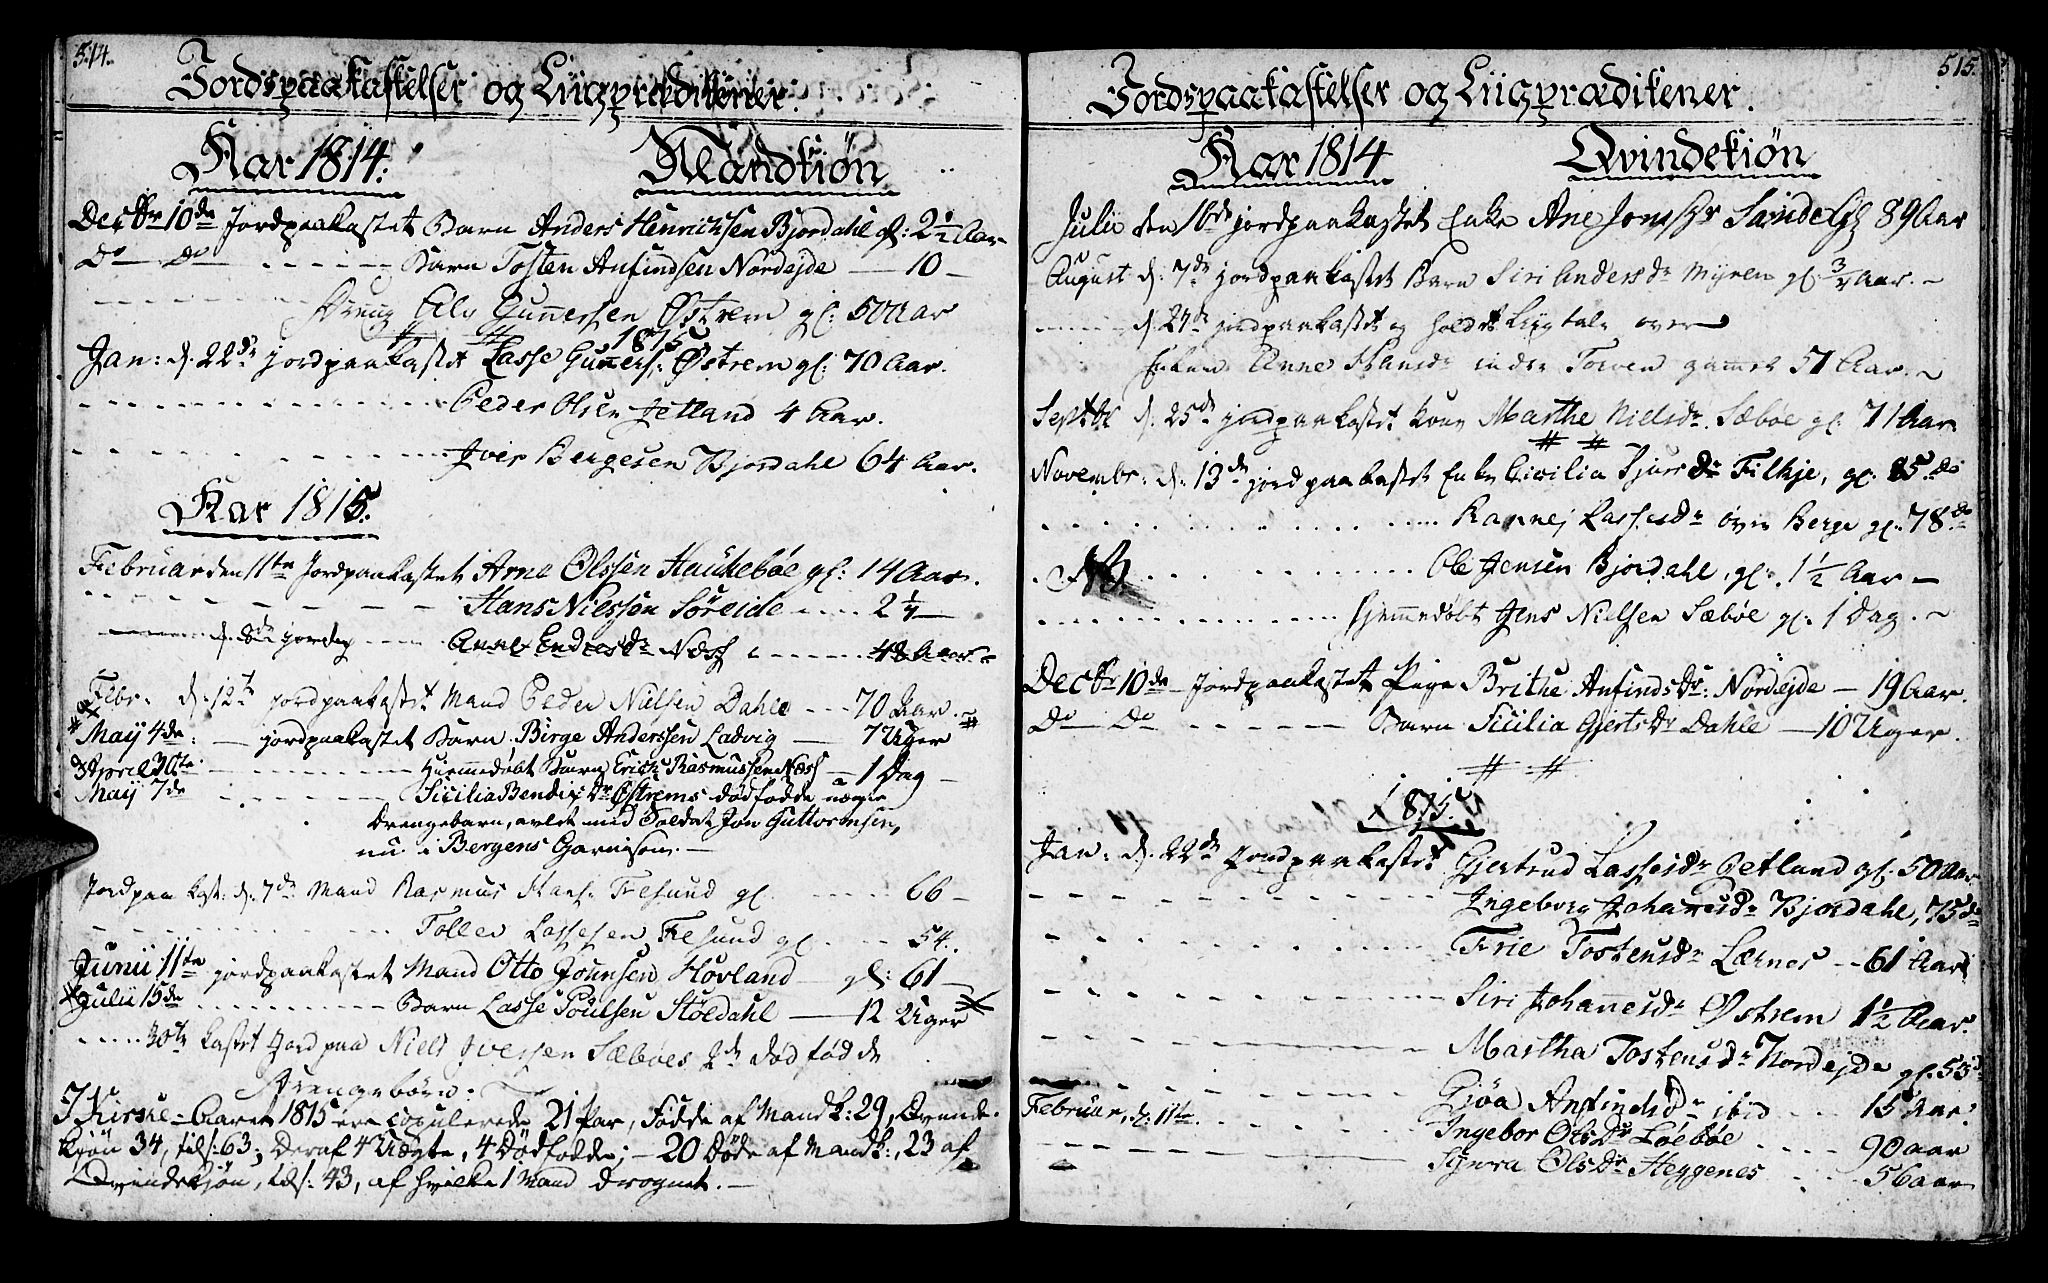 514.
Jordspaakastelser og Liigprædikener.
Aar 1814.
Mandkiøn
Decbr 10de Jordpaakastet Barn Anders Henrichsen Bjordahl gl: 2½ Aar
Do Do Barn Tosten Anfindsen Nordejde 10
Dreng Elv Gunnersen Østrem gl: 50 Aar
1815
Jan: d. 22de jordpaakastet Lasse Guners: Østrem gl: 70 Aar.
Peder Olsen Jetland 4 Aar.
Iver Bergesen Bjordahl 64 Aar.
Aar 1815.
Februar den 11te Jordpaakastet Arne Olssen Haukebøe gl: 14 Aar.
Hans Nielssen Søreide 2¼
Anne Endresdr Næss 48 Aar.
Febr. d. 12te jordpaakastet Mand Peder Nielsen Dahle 70 Aar.
May 4de jordpaakastet Barn Birge Anderssen Ladvig 7 Uger
April 30te Hiemmedøbt Barn Erich Rasmussen Næss 1 Dag
May 7de Sicilia Bendixdr Østrems dødfødde uægte
Drengebarn, avlet med Soldat Jon Guttormsen,
nu i Bergens Garnison.
Jordpaakast: d. 7de Mand Rasmus Hans: Fresund gl. 66
Toller Lassesen Fresund gl 54.
Junii 11te jordpaakastet Mand Otto Johnsen Hovland gl: 61
Julii 15de Barn Lasse Poulsen Støldahl 12 Uger
30te kastet Jord paa Niels Iverssen Sæbøes 2de dødfødde
Drengebørn.
I Kirke-Aaret 1815 ere copulerede 21 Par, Fødde af Mandk: 29, Qvinde-
kjøn 34, tils: 63; Deraf 4 Uægte, 4 Dødfødde; 20 Døde af Mandk:, 23 af
Qvindekjøn, tils: 43, af hvilke 1 Mand drognet.
515.
Jordspaakastelser og Liigprædikener.
Aar 1814
Qvindekiøn
Julii den 16de jordpaakastet Enke Ane Jons Dr 89 Aar
August d: 7de jordpaakastet Barn Siri Andersdr Myren gl: ¾ Aar.
d. 27de jordpaakastet og holdt Liigtale over
Enken Anne Hansdr Torven gammel 51 Aar.
Septbr d. 25de jordpaakastet Kone Marthe Nielsdr. Sæbøe gl: 71 Aar
Novembr: d. 13de jordpaakastet Enke Cicilia Sjursdr Filkje, gl: 85 do
Rannej Lassesdr øvre Berge gl: 78 do
NB Ole Jensen Bjordahl, gl: 1½ Aar
Hjemmedøbt Jens Nielsen Sæbøe gl: 1 Dag.
Decbr 10de Jordpaakastet Pige Brithe Anfindsdr: Nordejde 19 Aar.
Do Do Barn Sicilia Gjertsdr Dahle 10 Uger.
1815.
Jan: d. 22de Jordpaakastet Gjertrud Lassesdr Jetland gl: 50 Aar
Ingeborg Johannesdr Bjordahl, 75 do
Frie Tostensdr Lærnes 61 Aar
Siri Johannesdr Østrem 1½ Aar.
Martha Tostensdr Nordejde gl. 53 do
Gjøa Anfindsdr ibid 15 Aar
Februar, d. 11te Ingebor Olsdr Løebøe 90 aar
Synva Olsdr Heggenes 56 aar